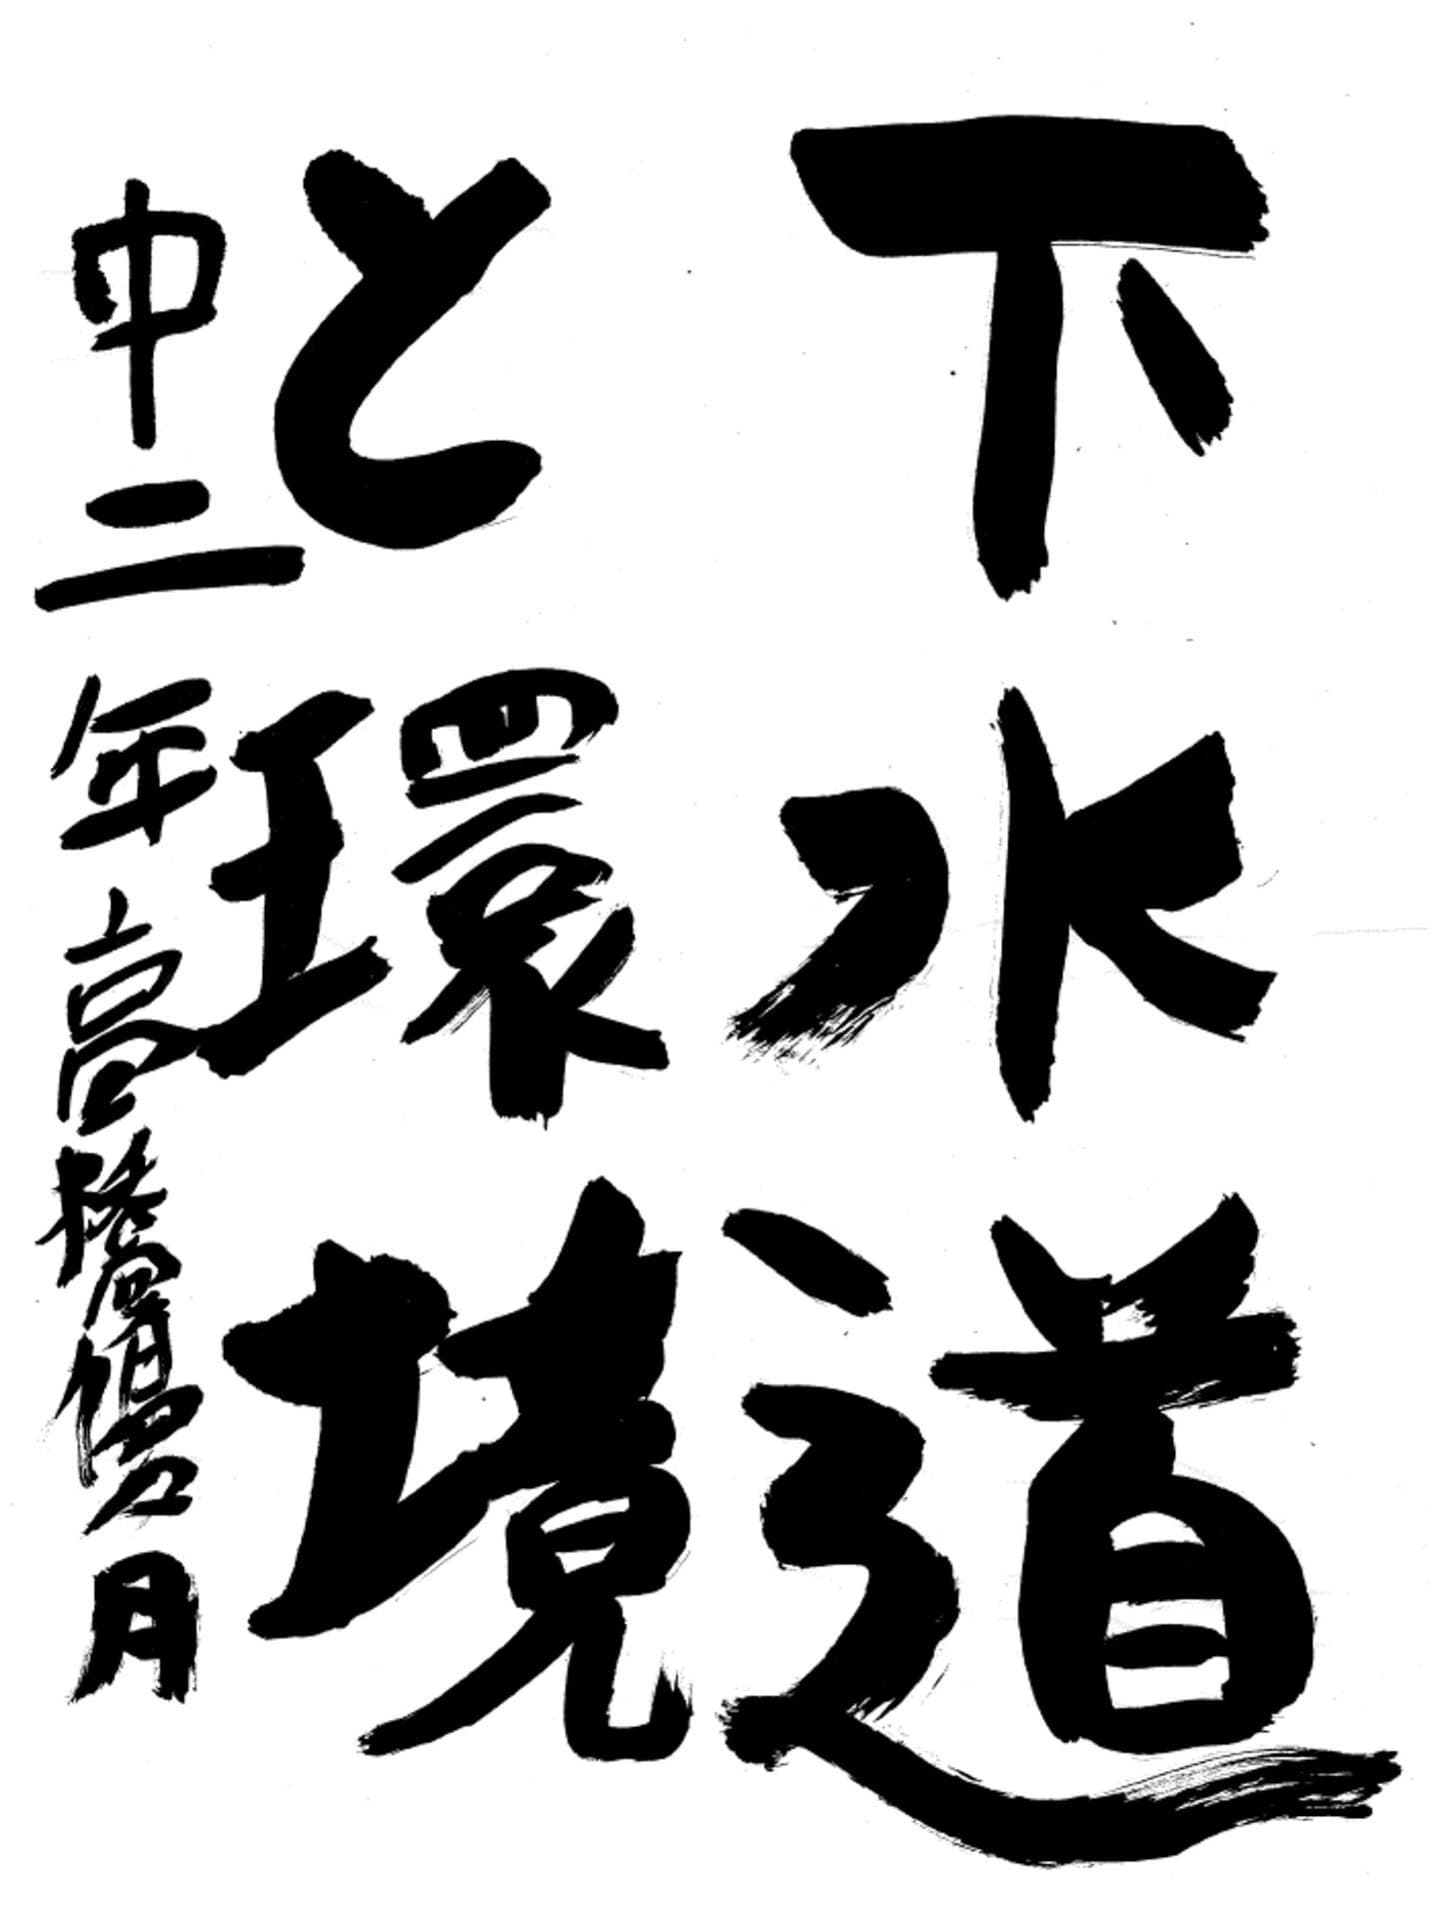 下水道
と環境
中二年高橋優月